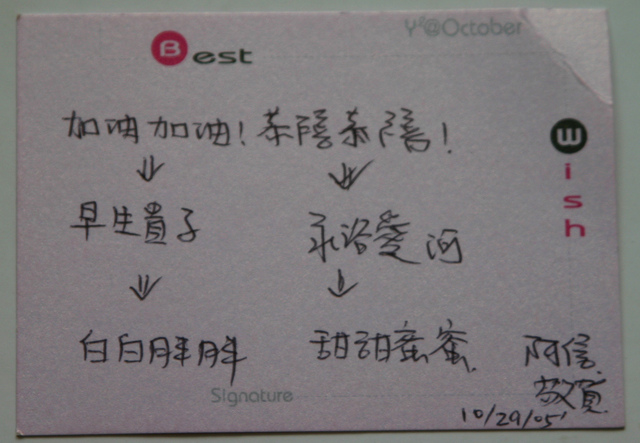 Y²@October
Best
Wish
加油加油！恭喜恭喜！
↓ ↓
早生貴子 永浴愛河
↓ ↓
白白胖胖 甜甜蜜蜜
阿信
敬賀
Signature
10/29/05'